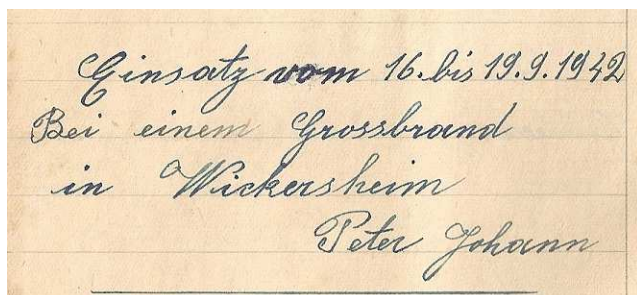 Einsatz vom 16. bis 19.9.1942
Bei einem Grossbrand
in Wickersheim
Peter Johann